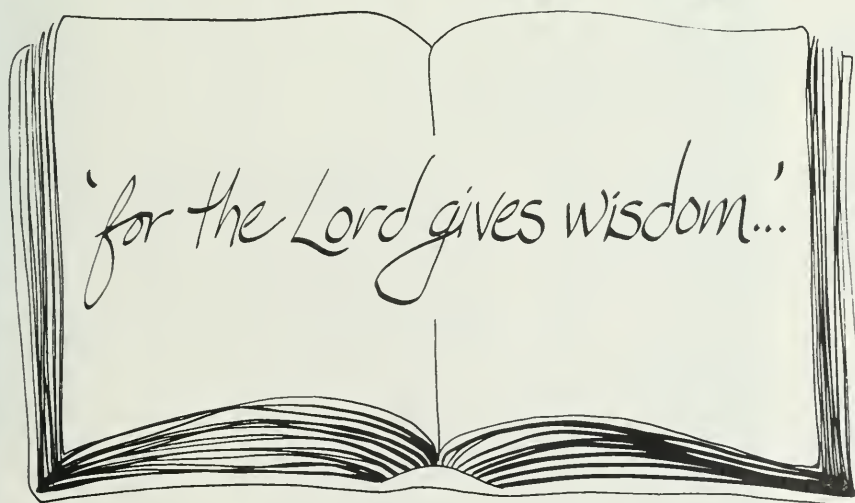 'for the Lord gives wisdom...'